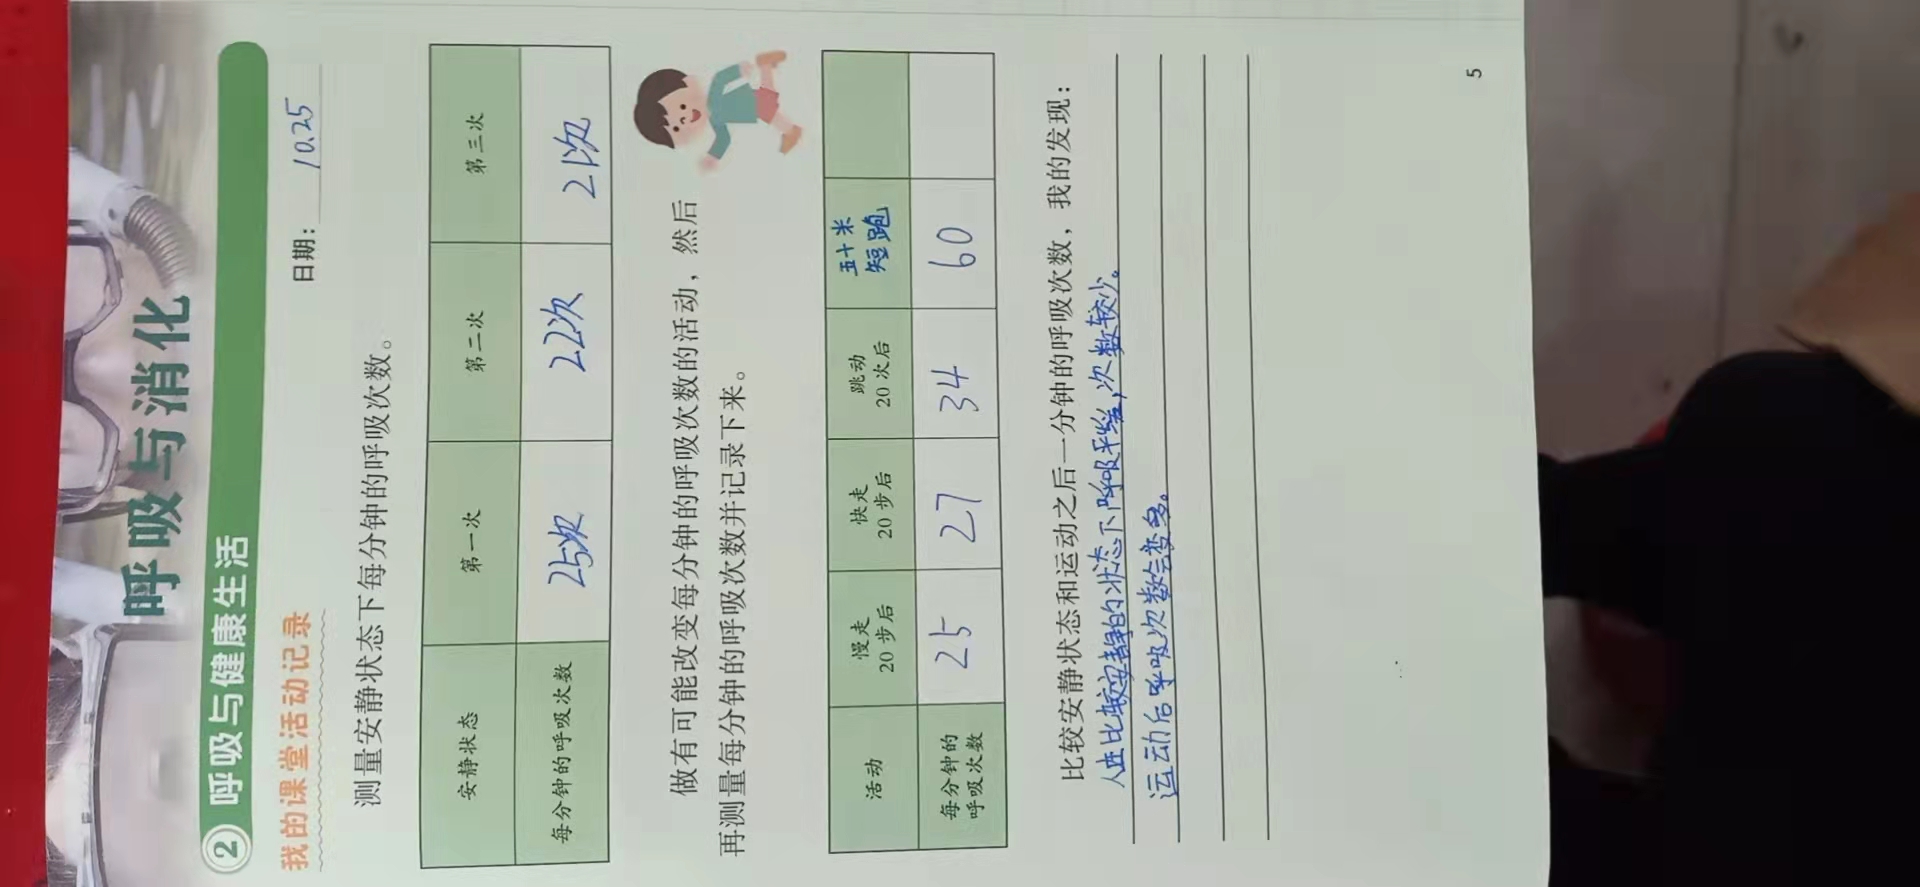 呼吸与消化
2 呼吸与健康生活
我的课堂活动记录
日期： 10.25
测量安静状态下每分钟的呼吸次数。
安静状态 第一次 第二次 第三次
每分钟的呼吸次数 25次 22次 21次
做有可能改变每分钟的呼吸次数的活动，然后
再测量每分钟的呼吸次数并记录下来。
活动 慢走 20 步后 快走 20 步后 跳动 20 次后 五十米短跑
每分钟的呼吸次数 25 27 34 60
比较安静状态和运动之后一分钟的呼吸次数，我的发现：
人在比较安静的状态下呼吸平缓，次数较少。
运动后呼吸次数会变多。
5